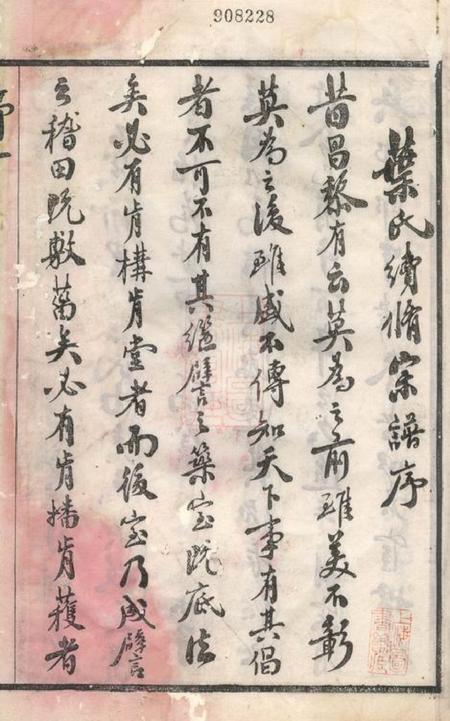 908228
葉氏續脩宗譜序
昔昌黎有云莫為之前雖美不彰
莫為之後雖盛不傳知天下事有其倡
者不可不有其繼譬之築室既底法
矣必有肯構肯堂者而後室乃成譬
之稽田既敷菑矣必有肯播肯穫者